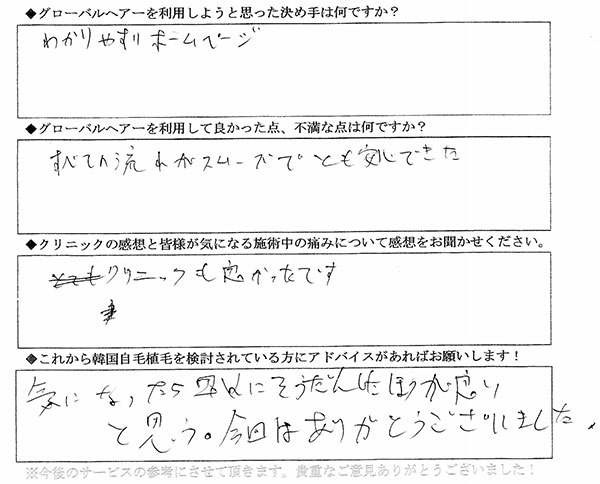 ◆グローバルヘアーを利用しようと思った決め手は何ですか？
わかりやすいホームページ
◆グローバルヘアーを利用して良かった点、不満な点は何ですか？
すべての流れがスムーズでとても安心できた
◆クリニックの感想と皆様が気になる施術中の痛みについて感想をお聞かせください。
クリニックも良かったです
◆これから韓国自毛植毛を検討されている方にアドバイスがあればお願いします！
気になったら にそうだんしたほうが良い
と思う。今回はありがとうございました。
※今後のサービスの参考にさせて頂きます。貴重なご意見ありがとうございました！